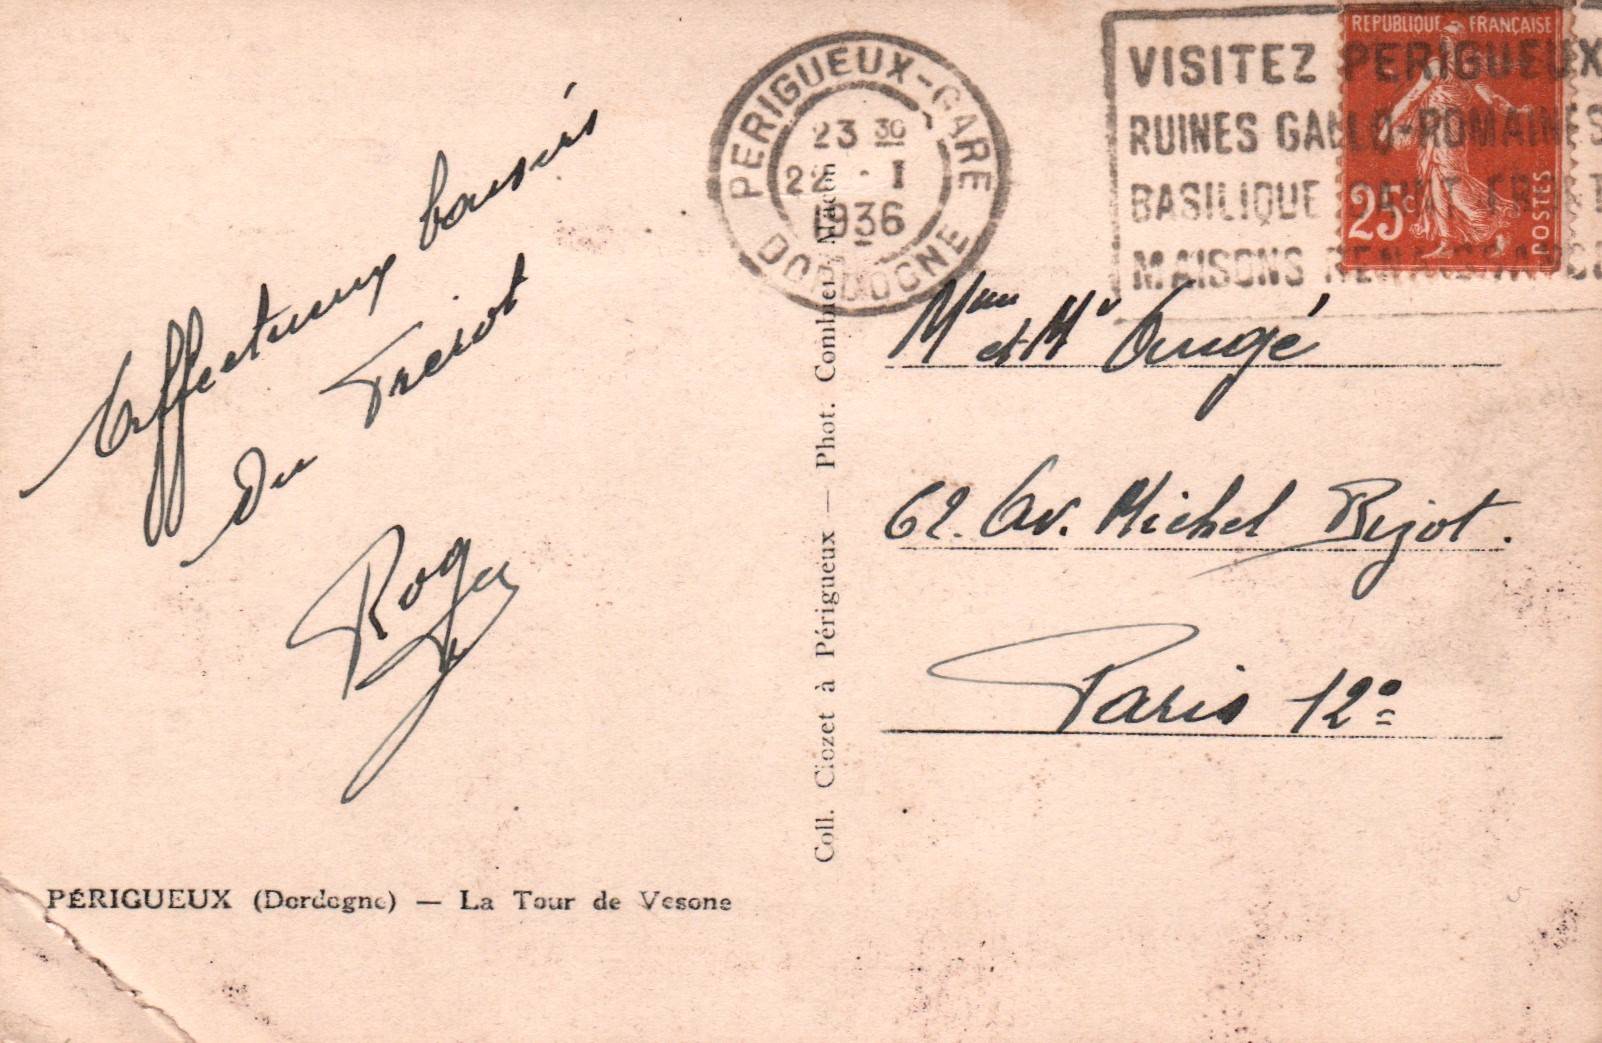 PERIGUEUX-GARE
23 30
22 · I
1936
DORDOGNE
VISITEZ PERIGUEUX
RUINES GALLO-ROMAINES
BASILIQUE SAINT FRONT
MAISONS RENAISSANCE
REPUBLIQUE FRANÇAISE
25c
POSTES
Affectueux baisers
du
Roger
Mme et Mr Augé
62. Av. Michel Bizot.
Paris 12e
Coll. Clozet à Périgueux — Phot. Combier, Macon
PÉRIGUEUX (Dordogne) — La Tour de Vesone